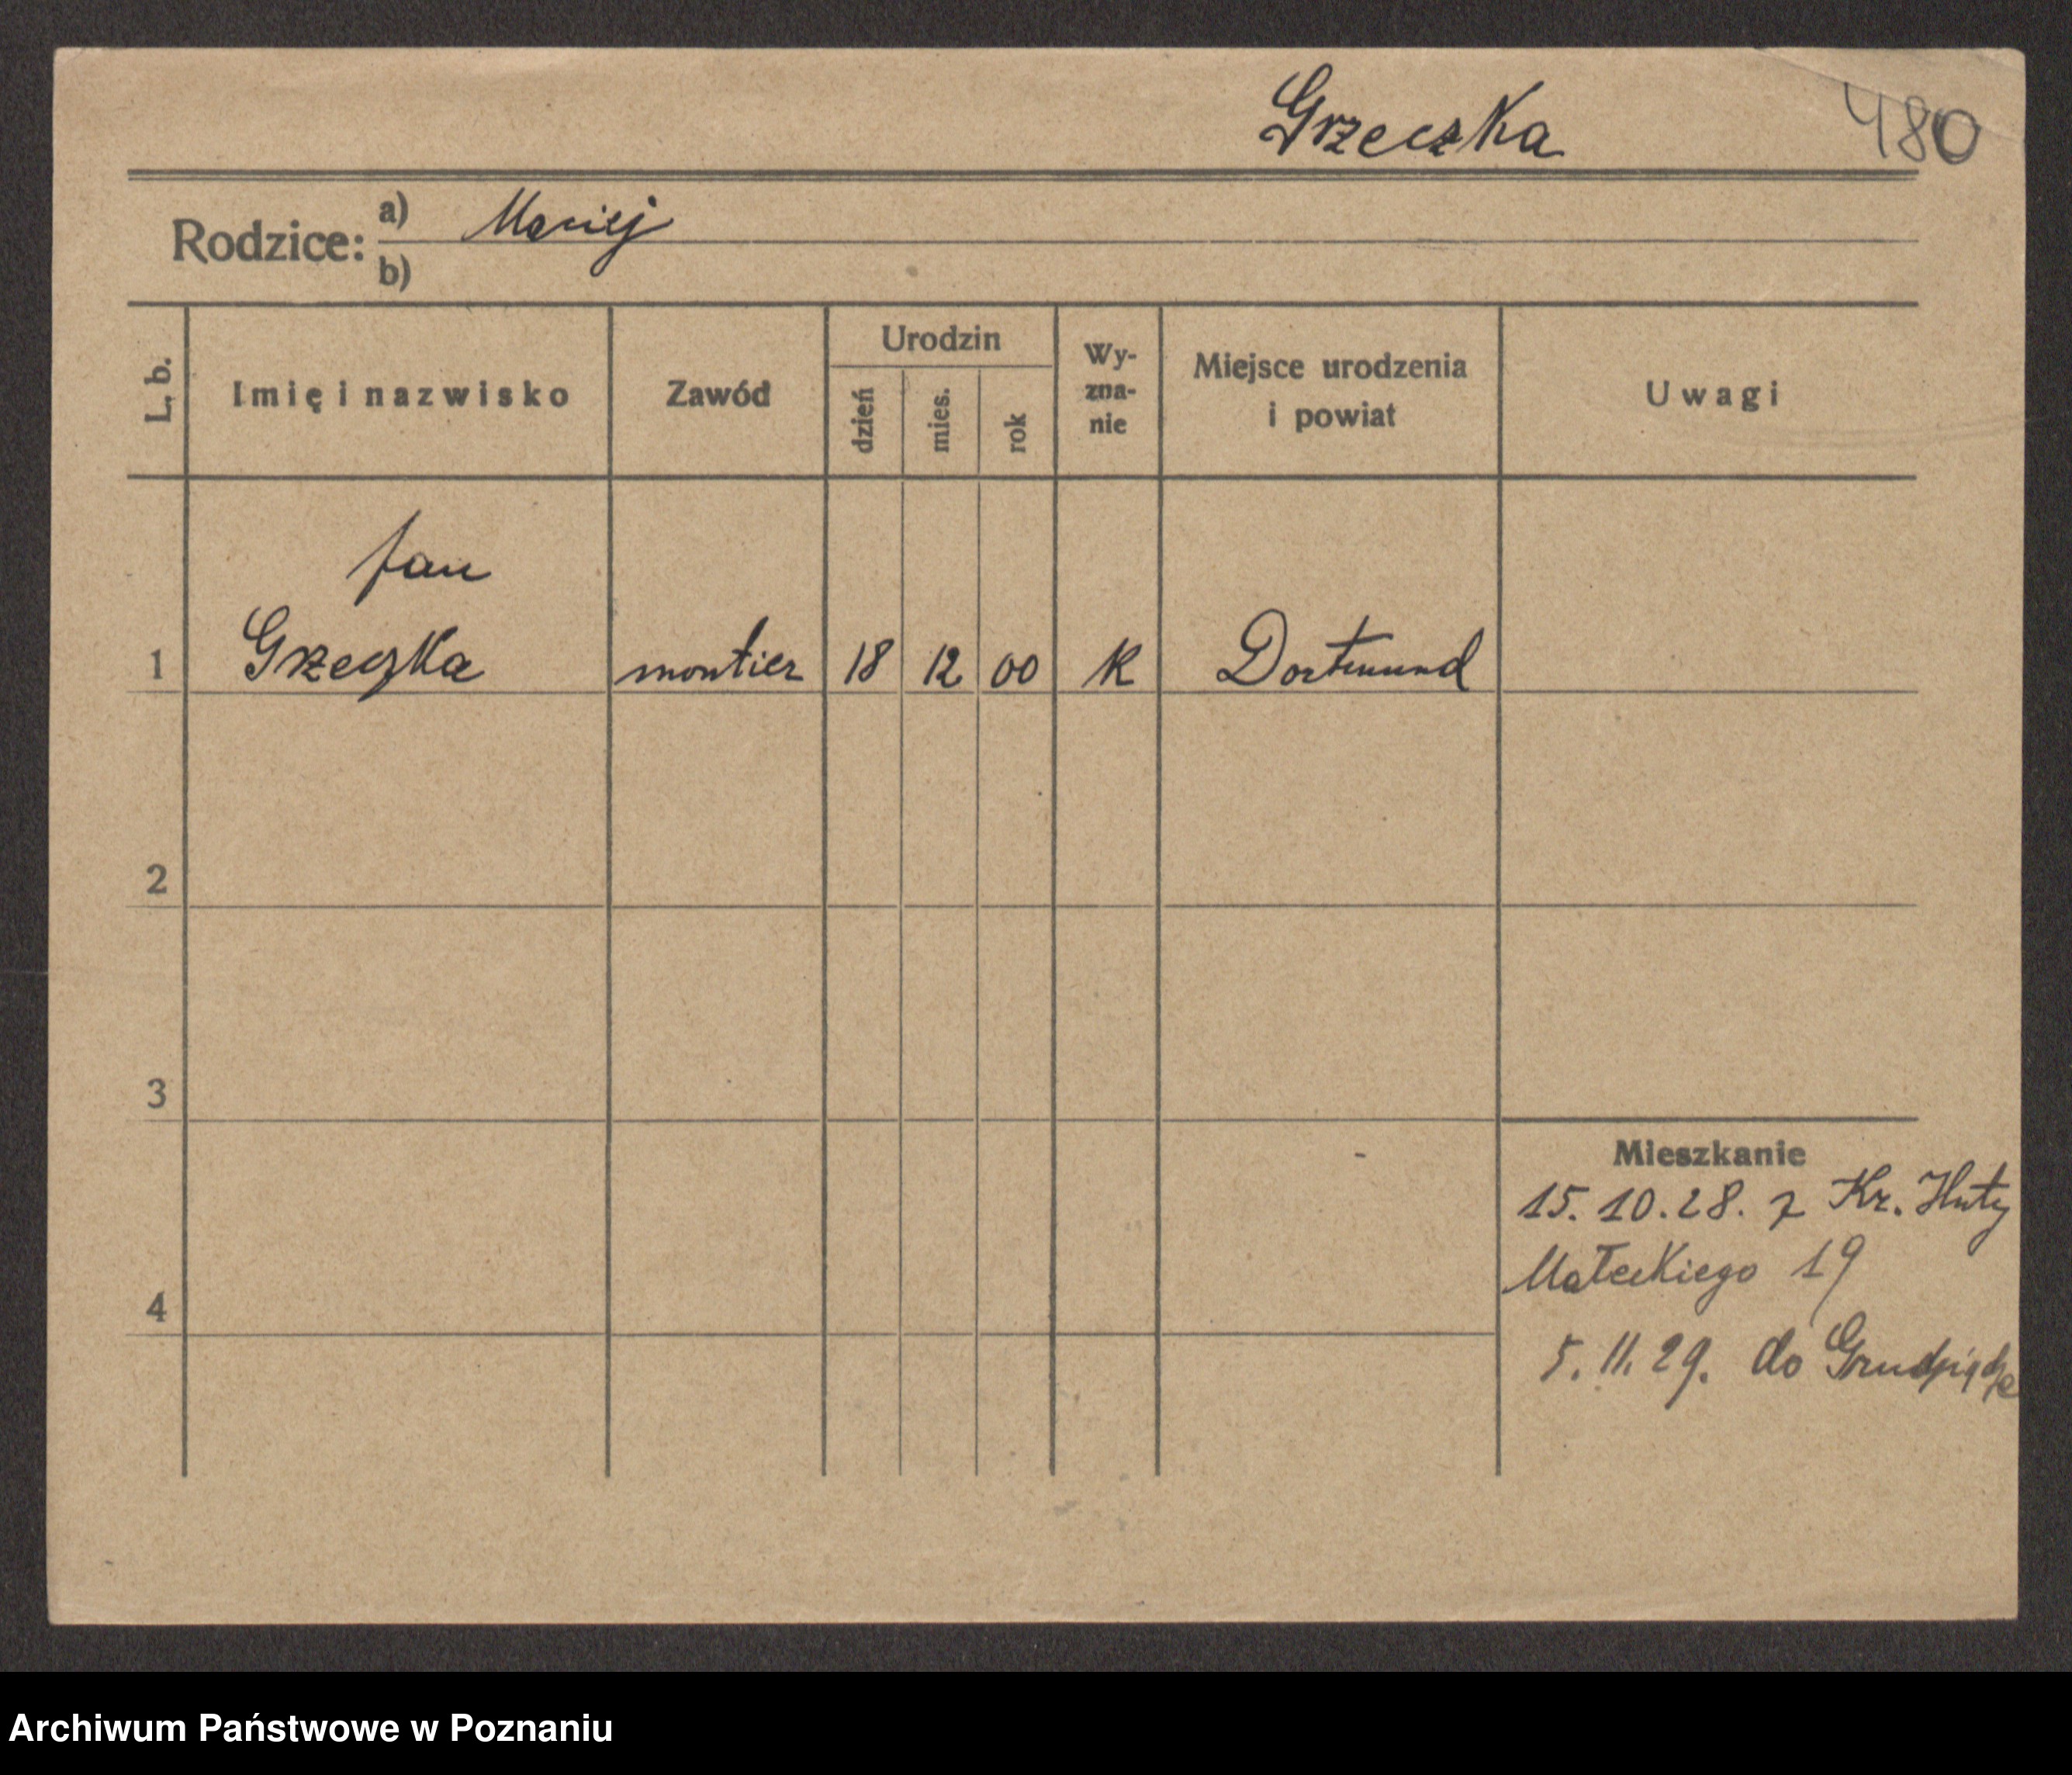 Grzeczka 480
Rodzice: a) Maciej
b)
L. b. Imię i nazwisko Zawód Urodzin dzień mies. rok Wy-zna-nie Miejsce urodzenia i powiat Uwagi
Jan
1 Grzeczka montier 18 12 00 K Dortmund
2
3
Mieszkanie
15.10.28. z Kr. Huty
Małeckiego 19
4
5.11.29. do Grudziądza
Archiwum Państwowe w Poznaniu